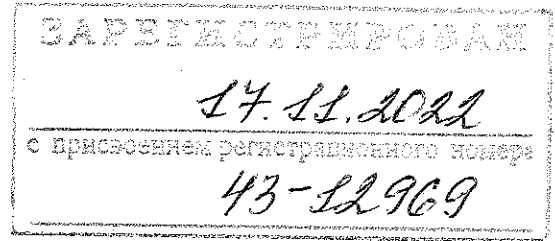 ЗАРЕГИСТРИРОВАН
17.11.2022
с присвоением регистрационного номера
43-12969